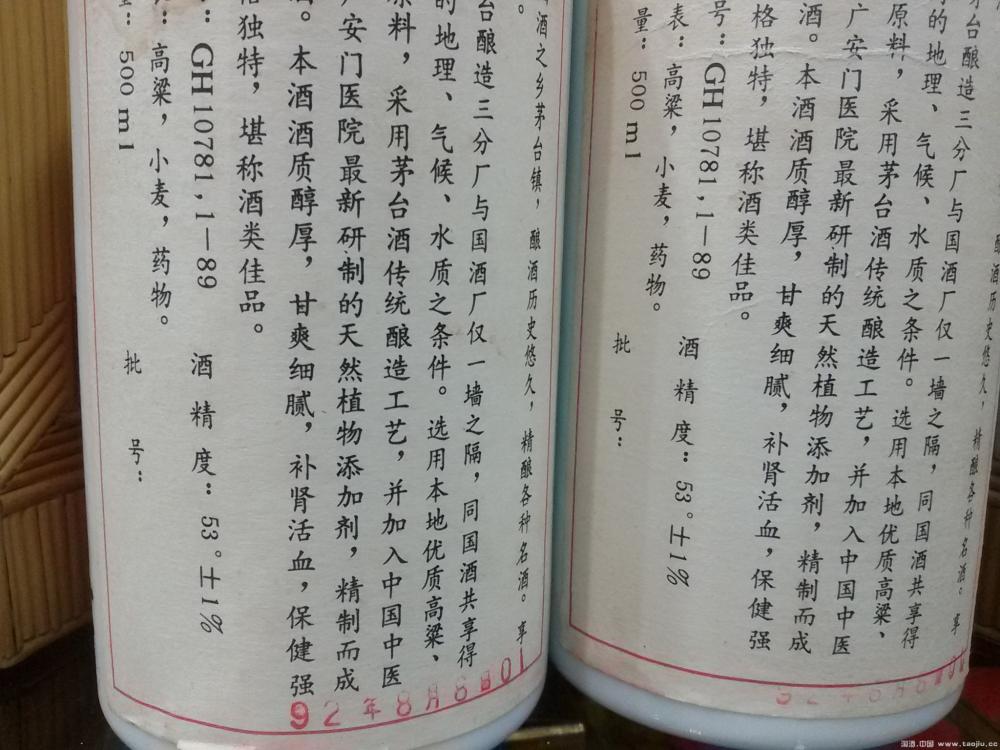 酒之乡茅台镇，酿酒历史悠久，精酿各种名酒。享
台酿造三分厂与国酒厂仅一墙之隔，同国酒共享得
的地理、气候、水质之条件。选用本地优质高粱、
原料，采用茅台酒传统酿造工艺，并加入中国中医
广安门医院最新研制的天然植物添加剂，精制而成
。本酒酒质醇厚，甘爽细腻，补肾活血，保健强
格独特，堪称酒类佳品。
：GH10781,1—89 酒精度：53°±1%
：高粱，小麦，药物。
量：500ml 批号：
92年8月6日01
酿酒历史悠久，精酿各种名酒。享
台酿造三分厂与国酒厂仅一墙之隔，同国酒共享得
的地理、气候、水质之条件。选用本地优质高粱、
原料，采用茅台酒传统酿造工艺，并加入中国中医
广安门医院最新研制的天然植物添加剂，精制而成
酒。本酒酒质醇厚，甘爽细腻，补肾活血，保健强
格独特，堪称酒类佳品。
号：GH10781,1—89 酒精度：53°±1%
表：高粱，小麦，药物。
量：500ml 批号：
淘酒.中国 www.taojiu.cc